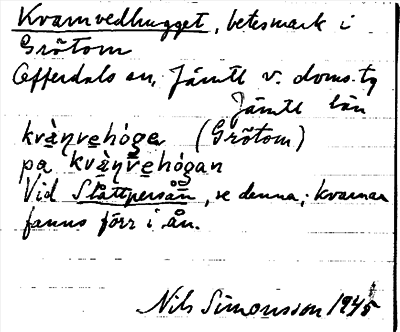 Kvarnvedhugget, betesmark i
Grötom
Offerdals sn, Jämtl v. doms. tg
Jämtl län
kvàṇvehóge (Grötom)
pa kvàṇvehógan
Vid Slåttpersån, se denna; kvarnar
fanns förr i ån.
Nils Simonsson 1945